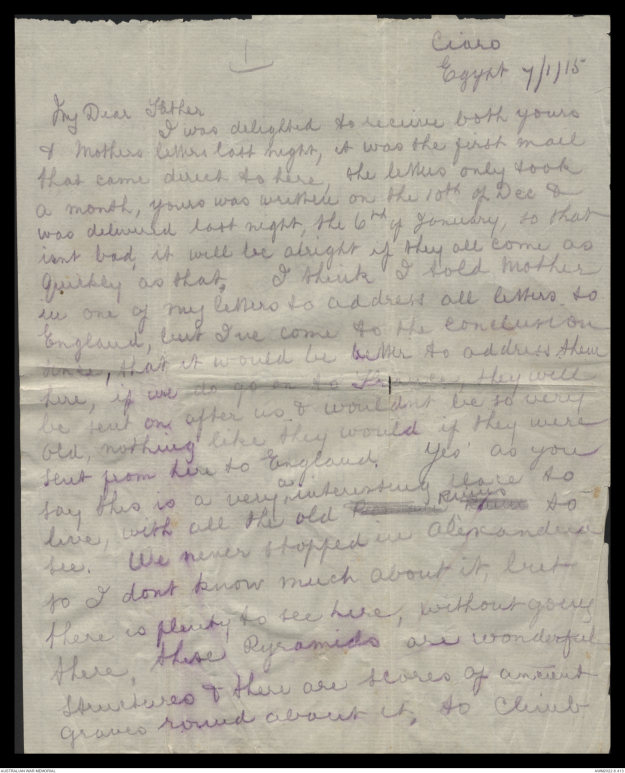 1
Ciaro
Egypt 7/1/15
My Dear Father
I was delighted to receive both yours
& Mothers letters last night, it was the first mail
that came direct to here, the letters only took
a month, yours was written on the 10th of Dec &
was delivered last night, the 6nd of January, so that
isnt bad, it will be alright if they all come as
quickly as that. I think I told Mother
in one of my letters to address all letters to
England, but I've come to the conclusion
since, that it would be better to address them
here, if we do go on to France, they will
be sent on after us & wouldnt be so very
old, nothing like they would if they were
sent from here to England. Yes as you
say this is a very interesting place to
live, with all the old ruins to
see. We never stopped in Alexandria
so I dont know much about it, but
there is plenty to see here, without going
there, these Pyramids are wonderful
structures & there are scores of ancient
graves round about it, to climb
AUSTRALIAN WAR MEMORIAL